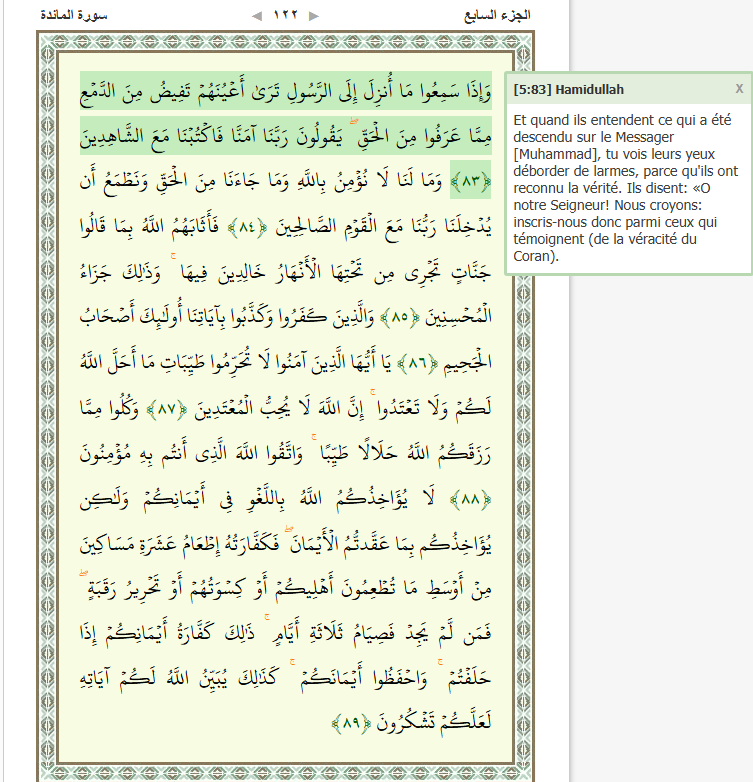 الجزء السابع ◄ ١٢٢ ► سورة المائدة
وَإِذَا سَمِعُوا مَا أُنزِلَ إِلَى الرَّسُولِ تَرَىٰ أَعْيُنَهُمْ تَفِيضُ مِنَ الدَّمْعِ
مِمَّا عَرَفُوا مِنَ الْحَقِّ ۖ يَقُولُونَ رَبَّنَا آمَنَّا فَاكْتُبْنَا مَعَ الشَّاهِدِينَ
﴿٨٣﴾ وَمَا لَنَا لَا نُؤْمِنُ بِاللَّهِ وَمَا جَاءَنَا مِنَ الْحَقِّ وَنَطْمَعُ أَن
يُدْخِلَنَا رَبُّنَا مَعَ الْقَوْمِ الصَّالِحِينَ ﴿٨٤﴾ فَأَثَابَهُمُ اللَّهُ بِمَا قَالُوا
جَنَّاتٍ تَجْرِي مِن تَحْتِهَا الْأَنْهَارُ خَالِدِينَ فِيهَا ۚ وَذَٰلِكَ جَزَاءُ
الْمُحْسِنِينَ ﴿٨٥﴾ وَالَّذِينَ كَفَرُوا وَكَذَّبُوا بِآيَاتِنَا أُولَٰئِكَ أَصْحَابُ
الْجَحِيمِ ﴿٨٦﴾ يَا أَيُّهَا الَّذِينَ آمَنُوا لَا تُحَرِّمُوا طَيِّبَاتِ مَا أَحَلَّ اللَّهُ
لَكُمْ وَلَا تَعْتَدُوا ۚ إِنَّ اللَّهَ لَا يُحِبُّ الْمُعْتَدِينَ ﴿٨٧﴾ وَكُلُوا مِمَّا
رَزَقَكُمُ اللَّهُ حَلَالًا طَيِّبًا ۚ وَاتَّقُوا اللَّهَ الَّذِي أَنتُم بِهِ مُؤْمِنُونَ
﴿٨٨﴾ لَا يُؤَاخِذُكُمُ اللَّهُ بِاللَّغْوِ فِي أَيْمَانِكُمْ وَلَٰكِن
يُؤَاخِذُكُم بِمَا عَقَّدتُّمُ الْأَيْمَانَ ۖ فَكَفَّارَتُهُ إِطْعَامُ عَشَرَةِ مَسَاكِينَ
مِنْ أَوْسَطِ مَا تُطْعِمُونَ أَهْلِيكُمْ أَوْ كِسْوَتُهُمْ أَوْ تَحْرِيرُ رَقَبَةٍ ۖ
فَمَن لَّمْ يَجِدْ فَصِيَامُ ثَلَاثَةِ أَيَّامٍ ۚ ذَٰلِكَ كَفَّارَةُ أَيْمَانِكُمْ إِذَا
حَلَفْتُمْ ۚ وَاحْفَظُوا أَيْمَانَكُمْ ۚ كَذَٰلِكَ يُبَيِّنُ اللَّهُ لَكُمْ آيَاتِهِ
لَعَلَّكُمْ تَشْكُرُونَ ﴿٨٩﴾
[5:83] Hamidullah X
Et quand ils entendent ce qui a été
descendu sur le Messager
[Muhammad], tu vois leurs yeux
déborder de larmes, parce qu'ils ont
reconnu la vérité. Ils disent: «O
notre Seigneur! Nous croyons:
inscris-nous donc parmi ceux qui
témoignent (de la véracité du
Coran).